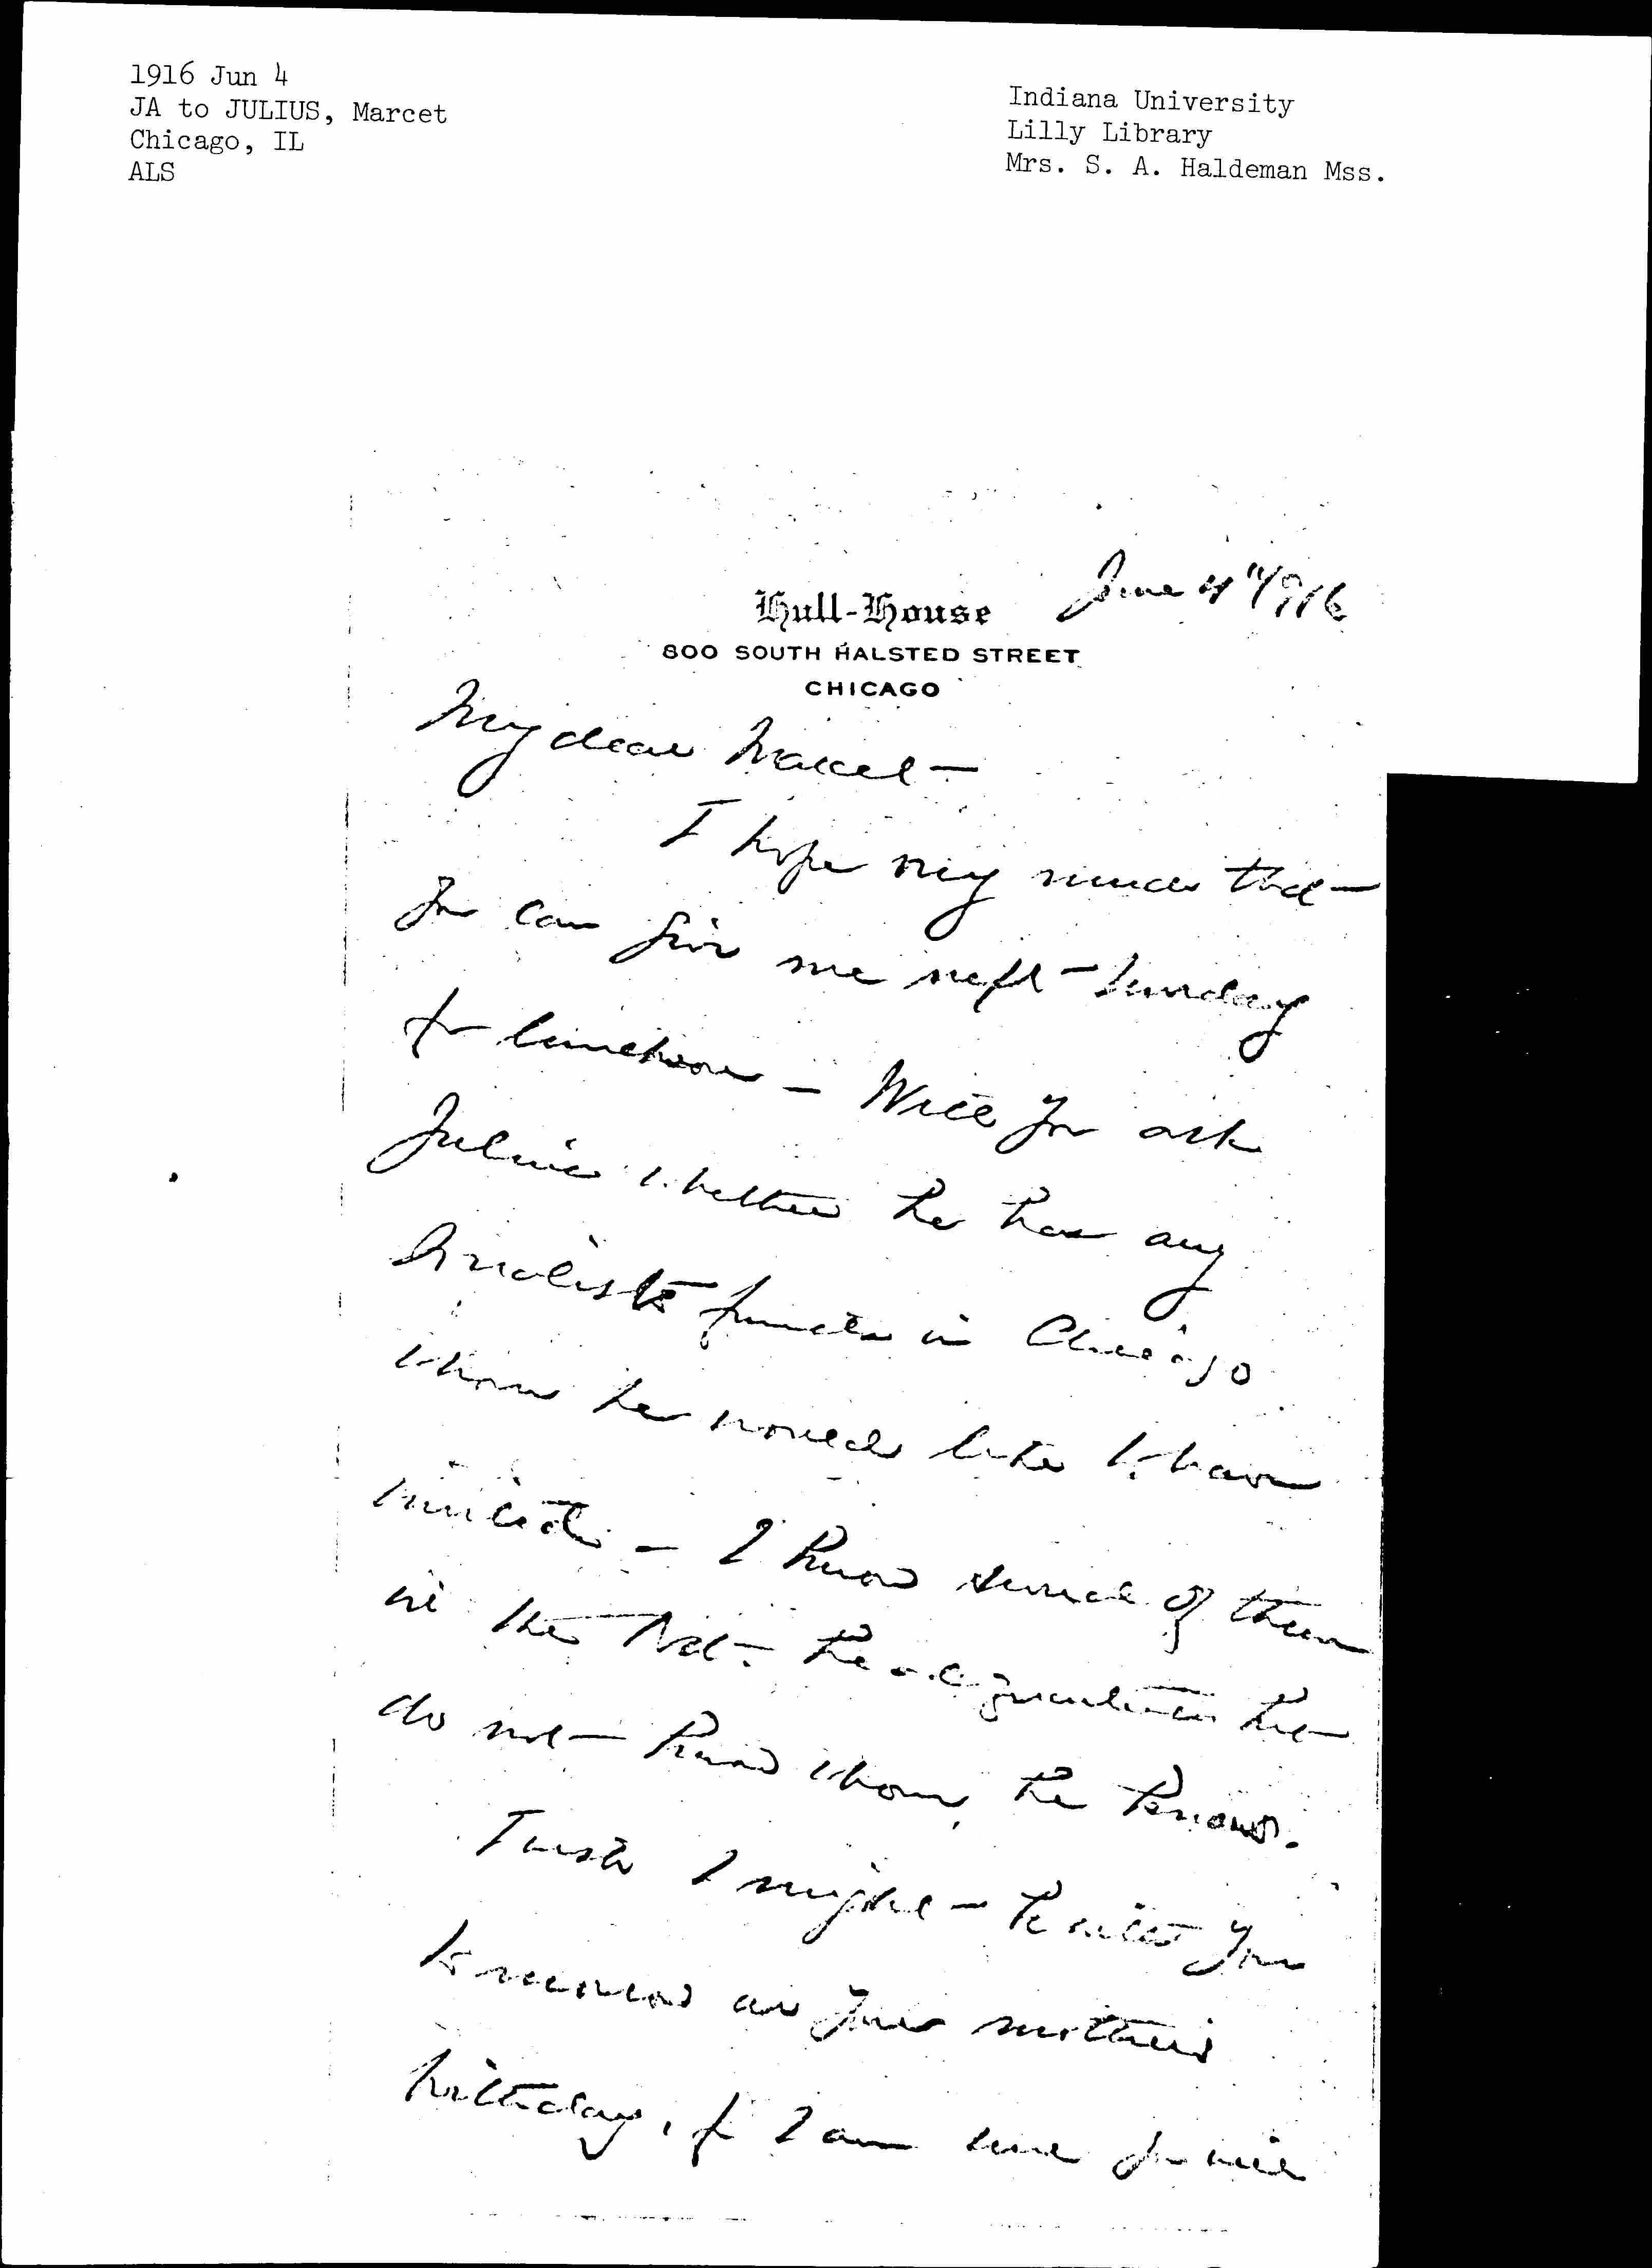 1916 Jun 4
JA to JULIUS, Marcet
Chicago, IL
ALS
Indiana University
Lilly Library
Mrs. S. A. Haldeman Mss.
June 4" 1916
Hull-House
800 SOUTH HALSTED STREET
CHICAGO
My dear Marcet —
I hope very much that
you can give me next Sunday
for luncheon — Will you ask
Julius whether he has any
Socialist friends in Chicago
whom he would like to have
invited — I know several of them
in the Nat. Headquarters but
do not know whom he knows.
I wish I might be with you
tomorrow on your mother's
birthday, for I am sure you will